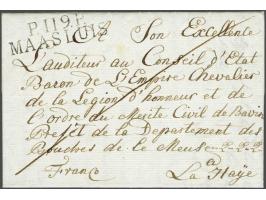 P.119.P.
MAASLUIS
A Son Excellente
L'auditeur au Conseil d'Etat
Baron de L'Empire Chevalier
de la Legion d'honneur et de
L'ordre du Merite Civil de Bavier
Prefet de la Departement des
Bouches de le Meuse
Franco
La Haÿe